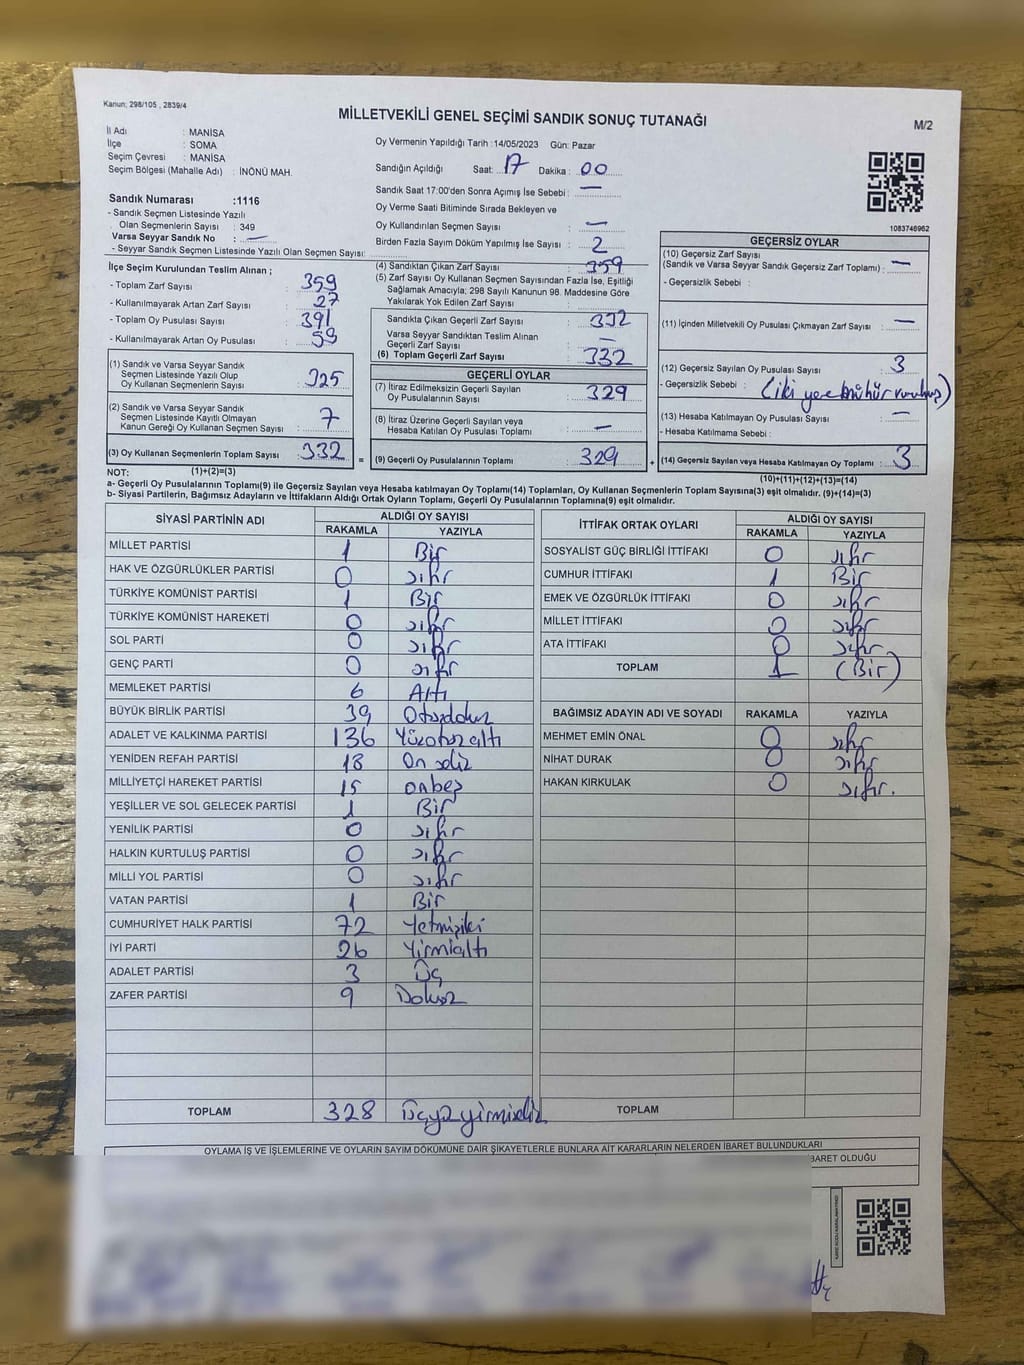 Kanun; 298/105 , 2839/4
MİLLETVEKİLİ GENEL SEÇİMİ SANDIK SONUÇ TUTANAĞI
M/2
İl Adı : MANİSA
İlçe : SOMA
Seçim Çevresi : MANİSA
Seçim Bölgesi (Mahalle Adı) : İNÖNÜ MAH.
Oy Vermenin Yapıldığı Tarih :14/05/2023 Gün: Pazar
Sandığın Açıldığı Saat: 17 Dakika : 00
Sandık Saat 17:00'den Sonra Açımış İse Sebebi : —
Oy Verme Saati Bitiminde Sırada Bekleyen ve
Oy Kullandırılan Seçmen Sayısı : —
Birden Fazla Sayım Döküm Yapılmış İse Sayısı : 2
1083746962
Sandık Numarası :1116
- Sandık Seçmen Listesinde Yazılı
Olan Seçmenlerin Sayısı : 349
Varsa Seyyar Sandık No : —
- Seyyar Sandık Listesinde Yazılı Olan Seçmen Sayısı:
İlçe Seçim Kurulundan Teslim Alınan ;
- Toplam Zarf Sayısı : 359
- Kullanılmayarak Artan Zarf Sayısı : 27
- Toplam Oy Pusulası Sayısı : 391
- Kullanılmayarak Artan Oy Pusulası : 59
(1) Sandık ve Varsa Seyyar Sandık
Seçmen Listesinde Yazılı Olup
Oy Kullanan Seçmenlerin Sayısı : 325
(2) Sandık ve Varsa Seyyar Sandık
Seçmen Listesinde Kayıtlı Olmayan
Kanun Gereği Oy Kullanan Seçmen Sayısı : 7
(3) Oy Kullanan Seçmenlerin Toplam Sayısı : 332
(4) Sandıktan Çıkan Zarf Sayısı : 359
(5) Zarf Sayısı Oy Kullanan Seçmen Sayısından Fazla İse, Eşitliği
Sağlamak Amacıyla; 298 Sayılı Kanunun 98. Maddesine Göre
Yakılarak Yok Edilen Zarf Sayısı :
Sandıkta Çıkan Geçerli Zarf Sayısı : 332
Varsa Seyyar Sandıktan Teslim Alınan
Geçerli Zarf Sayısı : —
(6) Toplam Geçerli Zarf Sayısı : 332
GEÇERLİ OYLAR
(7) İtiraz Edilmeksizin Geçerli Sayılan
Oy Pusulalarının Sayısı : 329
(8) İtiraz Üzerine Geçerli Sayılan veya
Hesaba Katılan Oy Pusulası Toplamı : —
= (9) Geçerli Oy Pusulalarının Toplamı : 329
GEÇERSİZ OYLAR
(10) Geçersiz Zarf Sayısı
(Sandık ve Varsa Seyyar Sandık Geçersiz Zarf Toplamı) : —
- Geçersizlik Sebebi :
(11) İçinden Milletvekili Oy Pusulası Çıkmayan Zarf Sayısı : —
(12) Geçersiz Sayılan Oy Pusulası Sayısı : 3
- Geçersizlik Sebebi : (iki yere mühür vurulmuş)
(13) Hesaba Katılmayan Oy Pusulası Sayısı : —
- Hesaba Katılmama Sebebi :
+ (14) Geçersiz Sayılan veya Hesaba Katılmayan Oy Toplamı : 3
NOT: (1)+(2)=(3)
(10)+(11)+(12)+(13)=(14)
a- Geçerli Oy Pusulalarının Toplamı(9) ile Geçersiz Sayılan veya Hesaba katılmayan Oy Toplamı(14) Toplamları, Oy Kullanan Seçmenlerin Toplam Sayısına(3) eşit olmalıdır. (9)+(14)=(3)
b- Siyasi Partilerin, Bağımsız Adayların ve İttifakların Aldığı Ortak Oyların Toplamı, Geçerli Oy Pusulalarının Toplamına(9) eşit olmalıdır.
SİYASİ PARTİNİN ADI ALDIĞI OY SAYISI
RAKAMLA YAZIYLA
MİLLET PARTİSİ 1 Bir
HAK VE ÖZGÜRLÜKLER PARTİSİ 0 sıfır
TÜRKİYE KOMÜNİST PARTİSİ 1 Bir
TÜRKİYE KOMÜNİST HAREKETİ 0 sıfır
SOL PARTİ 0 sıfır
GENÇ PARTİ 0 sıfır
MEMLEKET PARTİSİ 6 Altı
BÜYÜK BİRLİK PARTİSİ 39 Otuzdokuz
ADALET VE KALKINMA PARTİSİ 136 Yüzotuzaltı
YENİDEN REFAH PARTİSİ 18 On sekiz
MİLLİYETÇİ HAREKET PARTİSİ 15 onbeş
YEŞİLLER VE SOL GELECEK PARTİSİ 1 Bir
YENİLİK PARTİSİ 0 sıfır
HALKIN KURTULUŞ PARTİSİ 0 sıfır
MİLLİ YOL PARTİSİ 0 sıfır
VATAN PARTİSİ 1 Bir
CUMHURİYET HALK PARTİSİ 72 Yetmişiki
İYİ PARTİ 26 Yirmialtı
ADALET PARTİSİ 3 Üç
ZAFER PARTİSİ 9 Dokuz
TOPLAM 328 Üçyüzyirmisekiz
İTTİFAK ORTAK OYLARI ALDIĞI OY SAYISI
RAKAMLA YAZIYLA
SOSYALİST GÜÇ BİRLİĞİ İTTİFAKI 0 sıfır
CUMHUR İTTİFAKI 1 Bir
EMEK VE ÖZGÜRLÜK İTTİFAKI 0 sıfır
MİLLET İTTİFAKI 0 sıfır
ATA İTTİFAKI 0 sıfır
TOPLAM 1 (Bir)
BAĞIMSIZ ADAYIN ADI VE SOYADI RAKAMLA YAZIYLA
MEHMET EMİN ÖNAL 0 sıfır
NİHAT DURAK 0 sıfır
HAKAN KIRKULAK 0 sıfır.
TOPLAM
OYLAMA İŞ VE İŞLEMLERİNE VE OYLARIN SAYIM DÖKÜMÜNE DAİR ŞİKAYETLERLE BUNLARA AİT KARARLARIN NELERDEN İBARET BULUNDUKLARI
BARET OLDUĞU